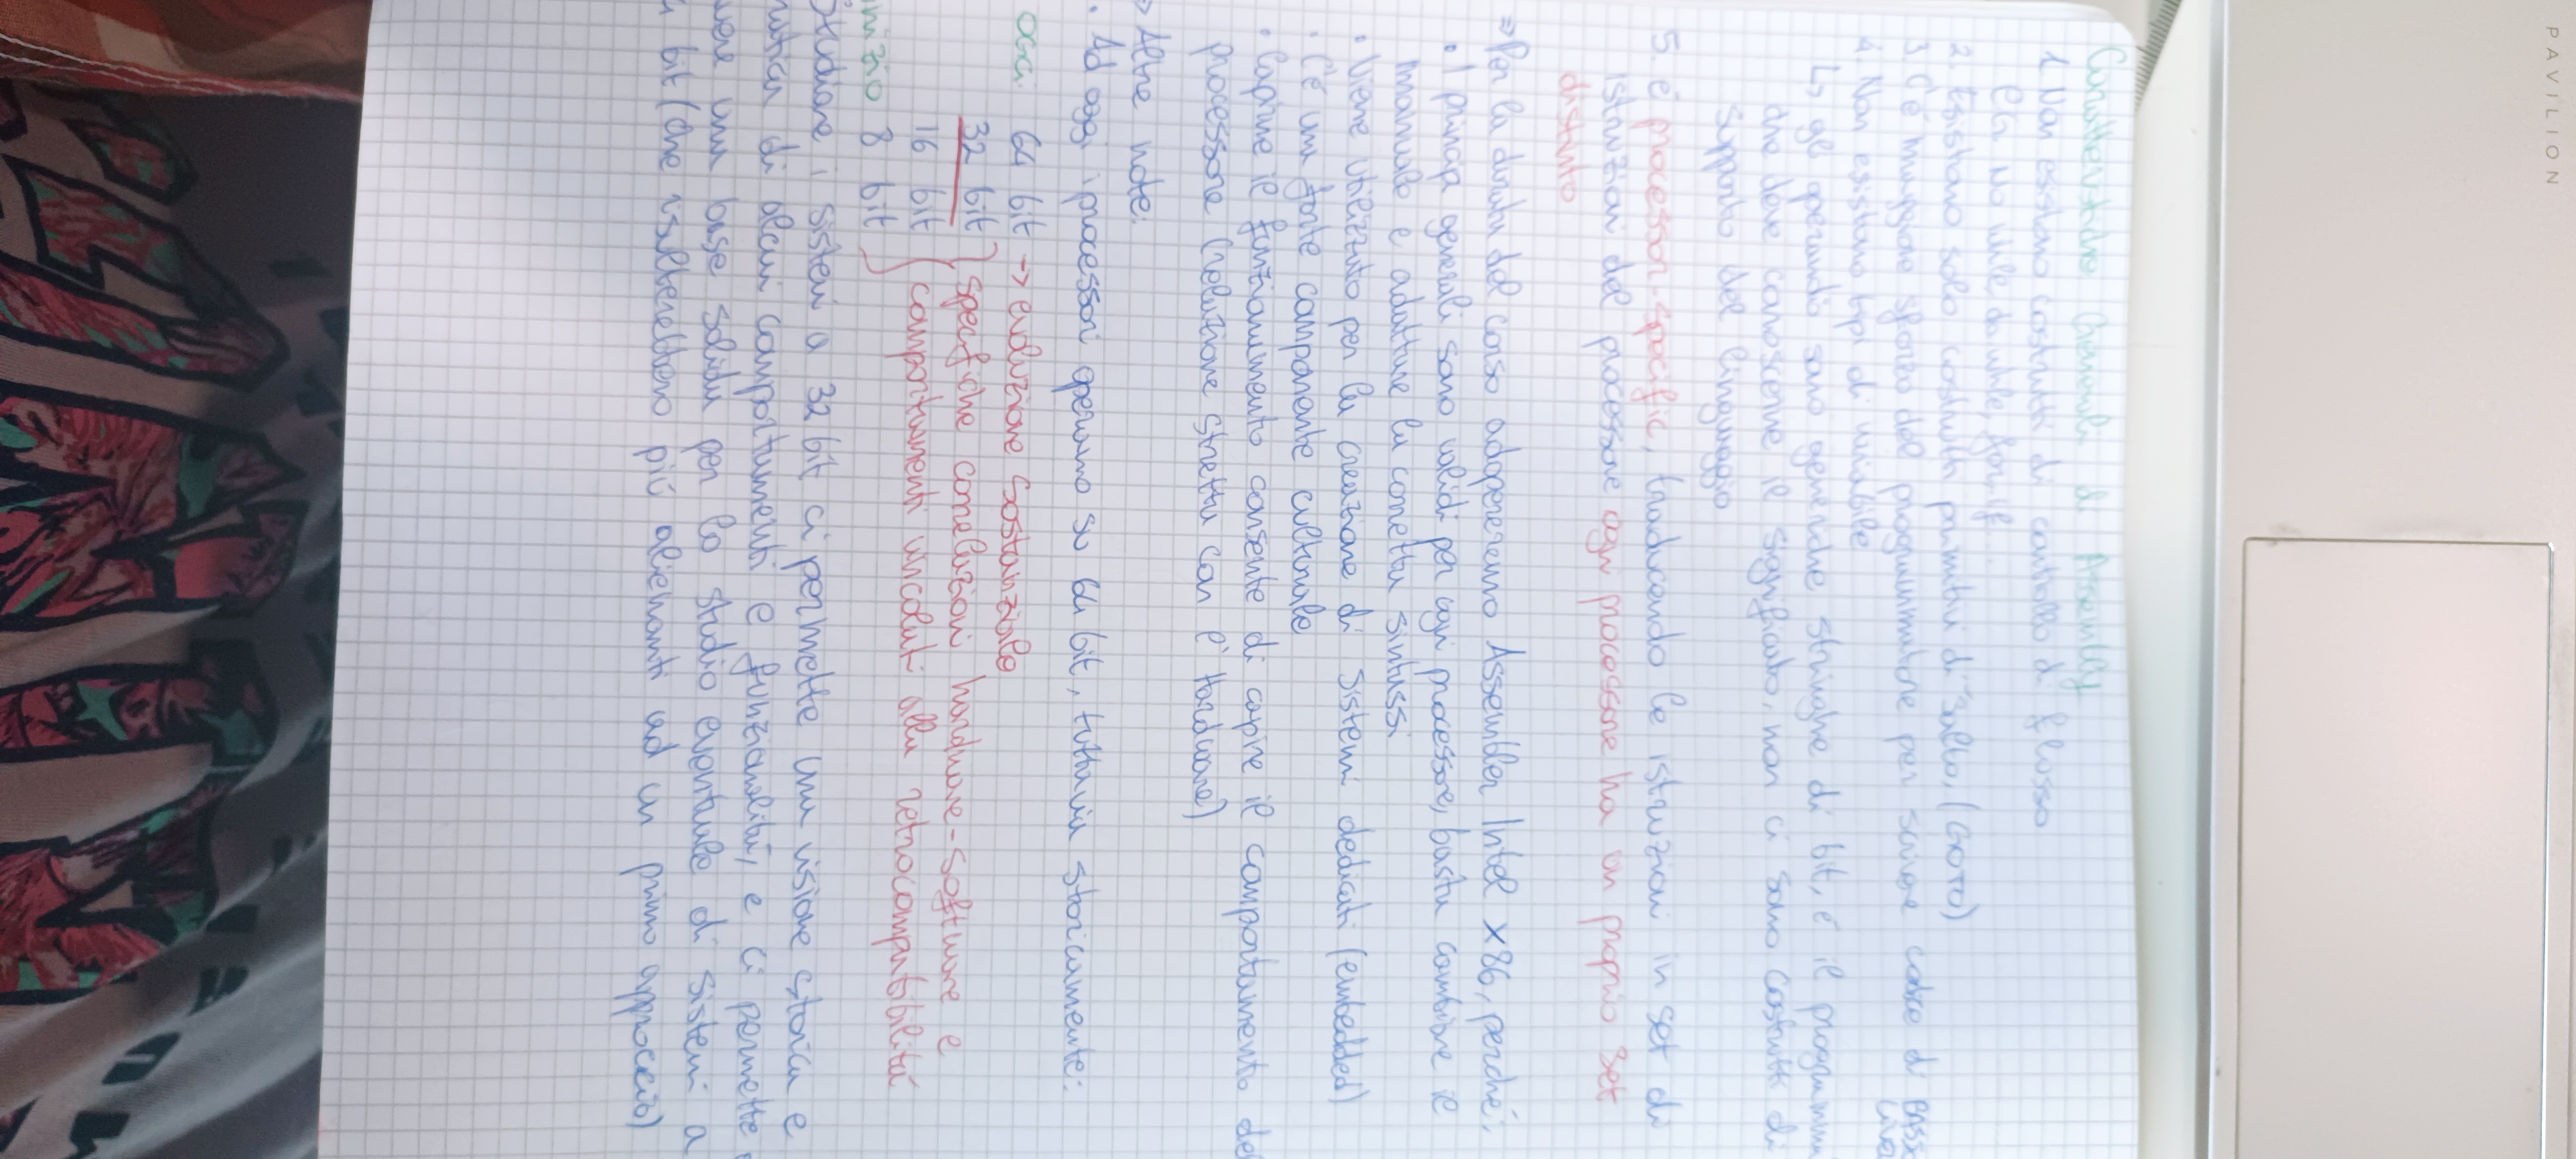 PAVILION
Caratteristiche Generali di Assembly
1. Non esistono costrutti di controllo di flusso
(Es. no while, do while, for, if...
2. Esistono solo costrutti primitivi di salto, (GOTO)
3. C'è maggiore sforzo del programmatore per scrivere codice di BASSO
4. Non esistono tipi di variabile
↳ gli operandi sono generiche stringhe di bit, è il programma
che deve conoscerne il significato, non ci sono costrutti di
supporto del linguaggio
5. è processor-specific, traducendo le istruzioni in set di
istruzioni del processore ogni processore ha un proprio set
distinto
⇒ Per la durata del corso adopereremo Assembler Intel x86, perché:
• I principi generali sono validi per ogni processore, basta cambiare il
manuale e adattare la corretta sintassi
• Viene utilizzato per la creazione di sistemi dedicati (embedded)
• C'è una forte componente culturale
• Capirne il funzionamento consente di capire il comportamento del
processore (relazione stretta con l'hardware)
⇒ Altre note:
• Ad oggi i processori operano su 64 bit, tuttavia storicamente:
OGGI 64 bit → evoluzione sostanziale
32 bit } specifiche correlazioni hardware-software e
16 bit } comportamenti vincolati alla retrocompatibilità
inizio 8 bit
Studiare i sistemi a 32 bit ci permette una visione storica e
di alcuni comportamenti e funzionalità, e ci permette
avere una base solida per lo studio eventuale di sistemi a
bit (che risulterebbero più alienanti ad un primo approccio)